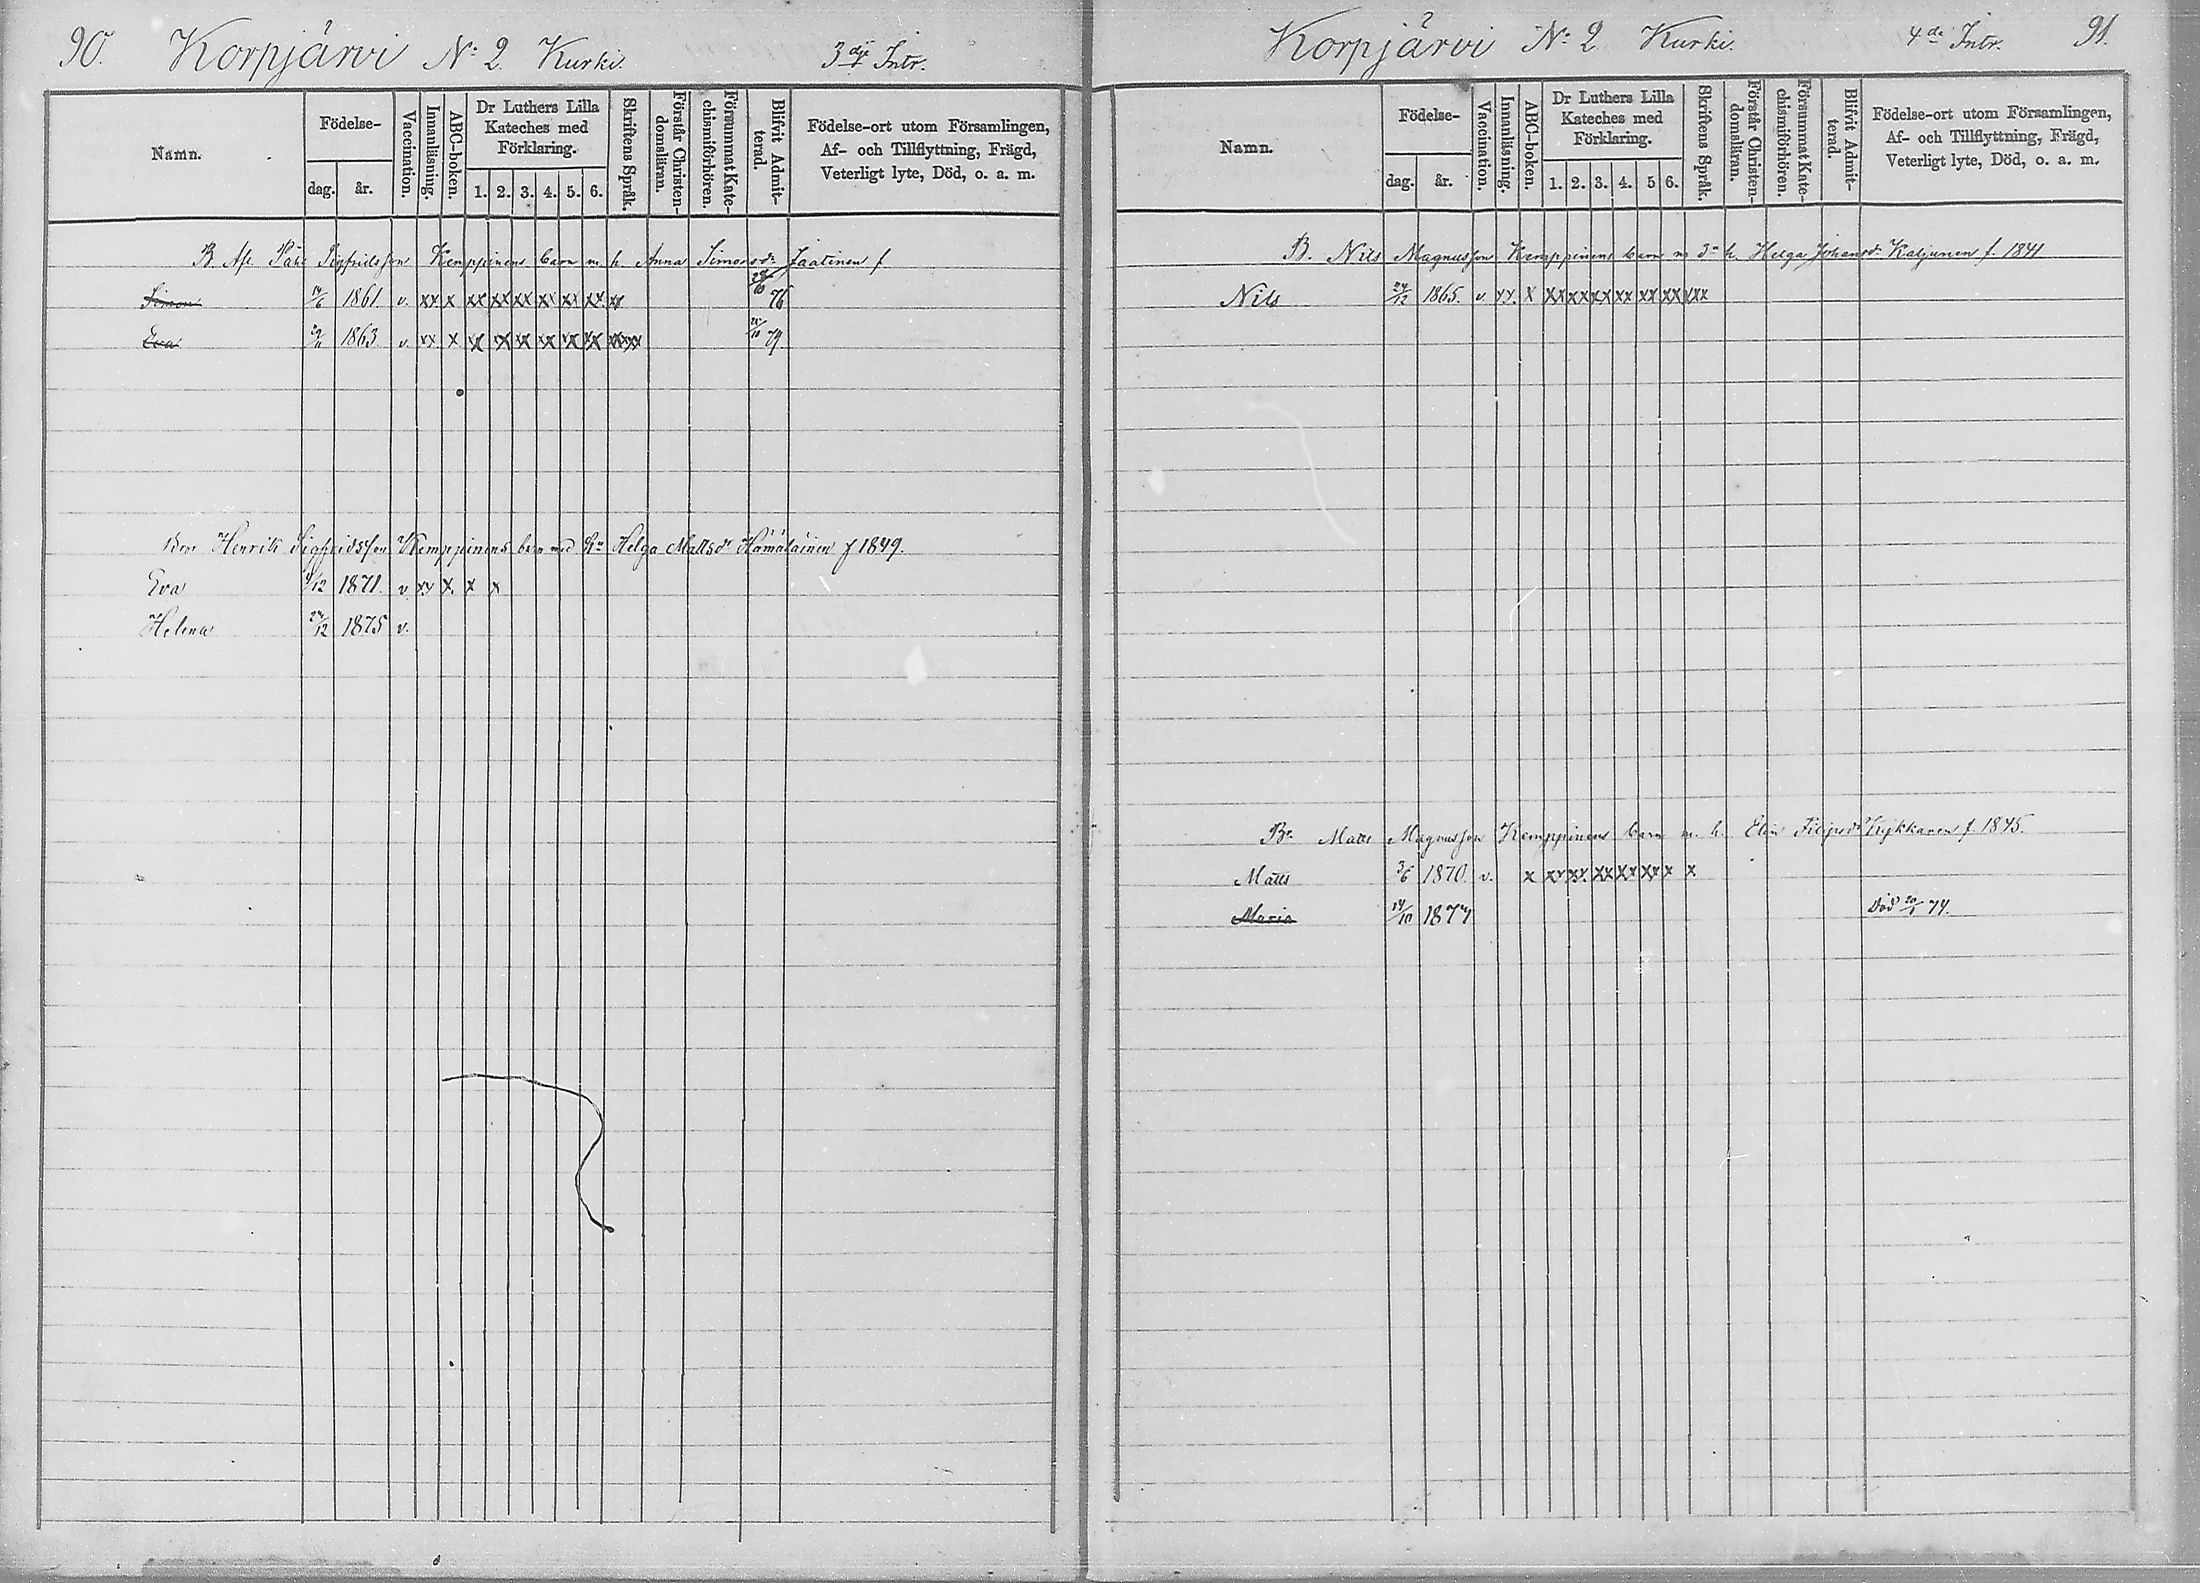 90. Korpjärvi No 2 Kurki. 3dje Intr.
Namn. Födelse- dag. år. Vaccination. Innanläsning. ABC-boken. Dr Luthers Lilla Kateches med Förklaring. 1. 2. 3. 4. 5. 6. Skriftens Språk. Förstår Christendomsläran. Försummat Katechismiförhören. Blifvit Admitterad. Födelse-ort utom Församlingen, Af- och Tillflyttning, Frägd, Veterligt lyte, Död, o. a. m.
B. Afl. Påhl Sigfridsson Kemppinens barn m. h. Anna Simonsdr Jaatinen f
Simon 14/6 1861. v. xx x xx xx xx xx xx xx xx 76
Eva 1863. v. xx x xx xx xx xx xx xx xxxx 79
Bror Henrik Sigfridsson Kemppinens barn med Hu Helga Mattsdr Hämäläinen f 1849.
Eva 1871. v xx x x x
Helena 24/12 1875 v.
Korpjärvi No 2 Kurki. 4de Intr. 91.
Namn. Födelse- dag. år. Vaccination. Innanläsning. ABC-boken. Dr Luthers Lilla Kateches med Förklaring. 1. 2. 3. 4. 5 6. Skriftens Språk. Förstår Christendomsläran. Försummat Katechismiförhören. Blifvit Admitterad. Födelse-ort utom Församlingen, Af- och Tillflyttning, Frägd, Veterligt lyte, Död, o. a. m.
B. Nils Magnusson Kemppinens barn m h. Helga Johansdr Kaljunen f. 1841
Nils 24/12 1865. v. xx. x xx xx xx xx xx xx xxx
Br. Matts Magnusson Kemppinens barn m. h. Elin Filipsdr Kykkanen f. 1845.
Matts 3/6 1870. v. x xx xx. xx xx xx x x
Maria 14/10 187 Död 20/1 74.